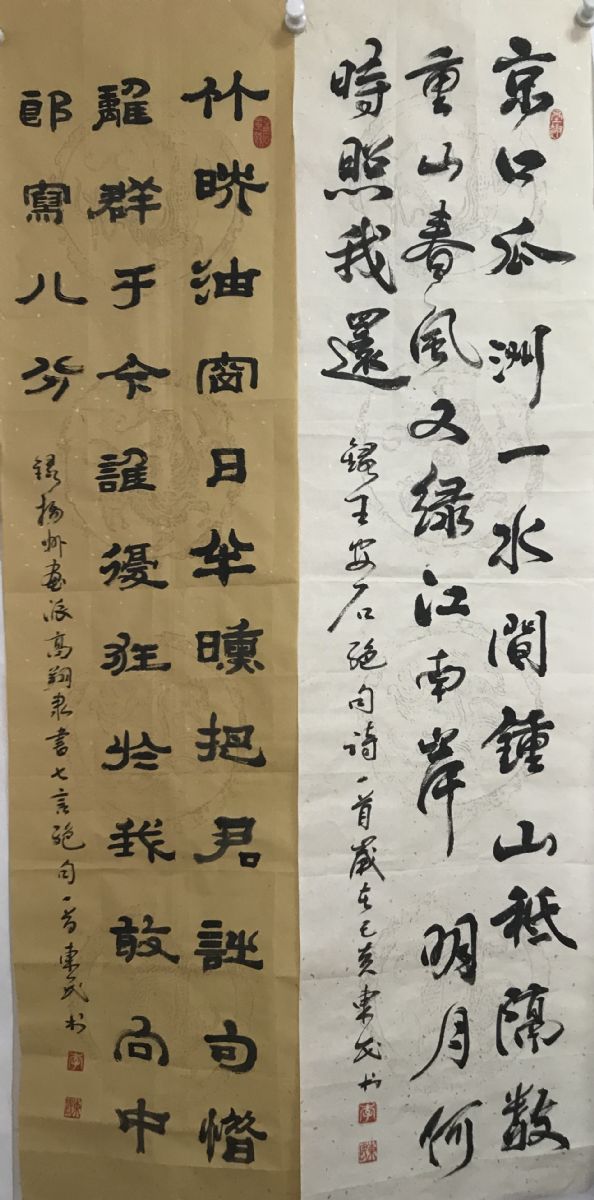 京口瓜洲一水間鍾山秪隔數
重山春風又綠江南岸明月何
時照我還
錄王安石絕句詩一首歲在己亥東民书
竹映油窗日半曛把君詩句惜
離群于今誰復狂於我敢向中
郎寫八分
錄揚州畫派高翔隸書七言絕句一首東民书